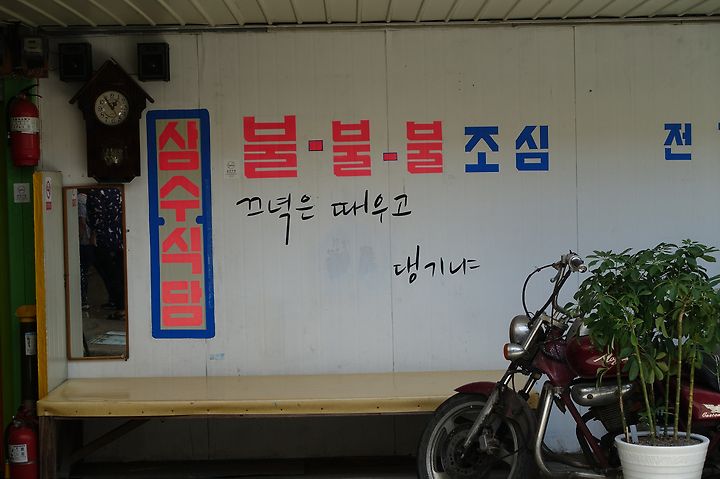 삼수식당
불-불-불조심
전
끄녁은 때우고
댕기냐